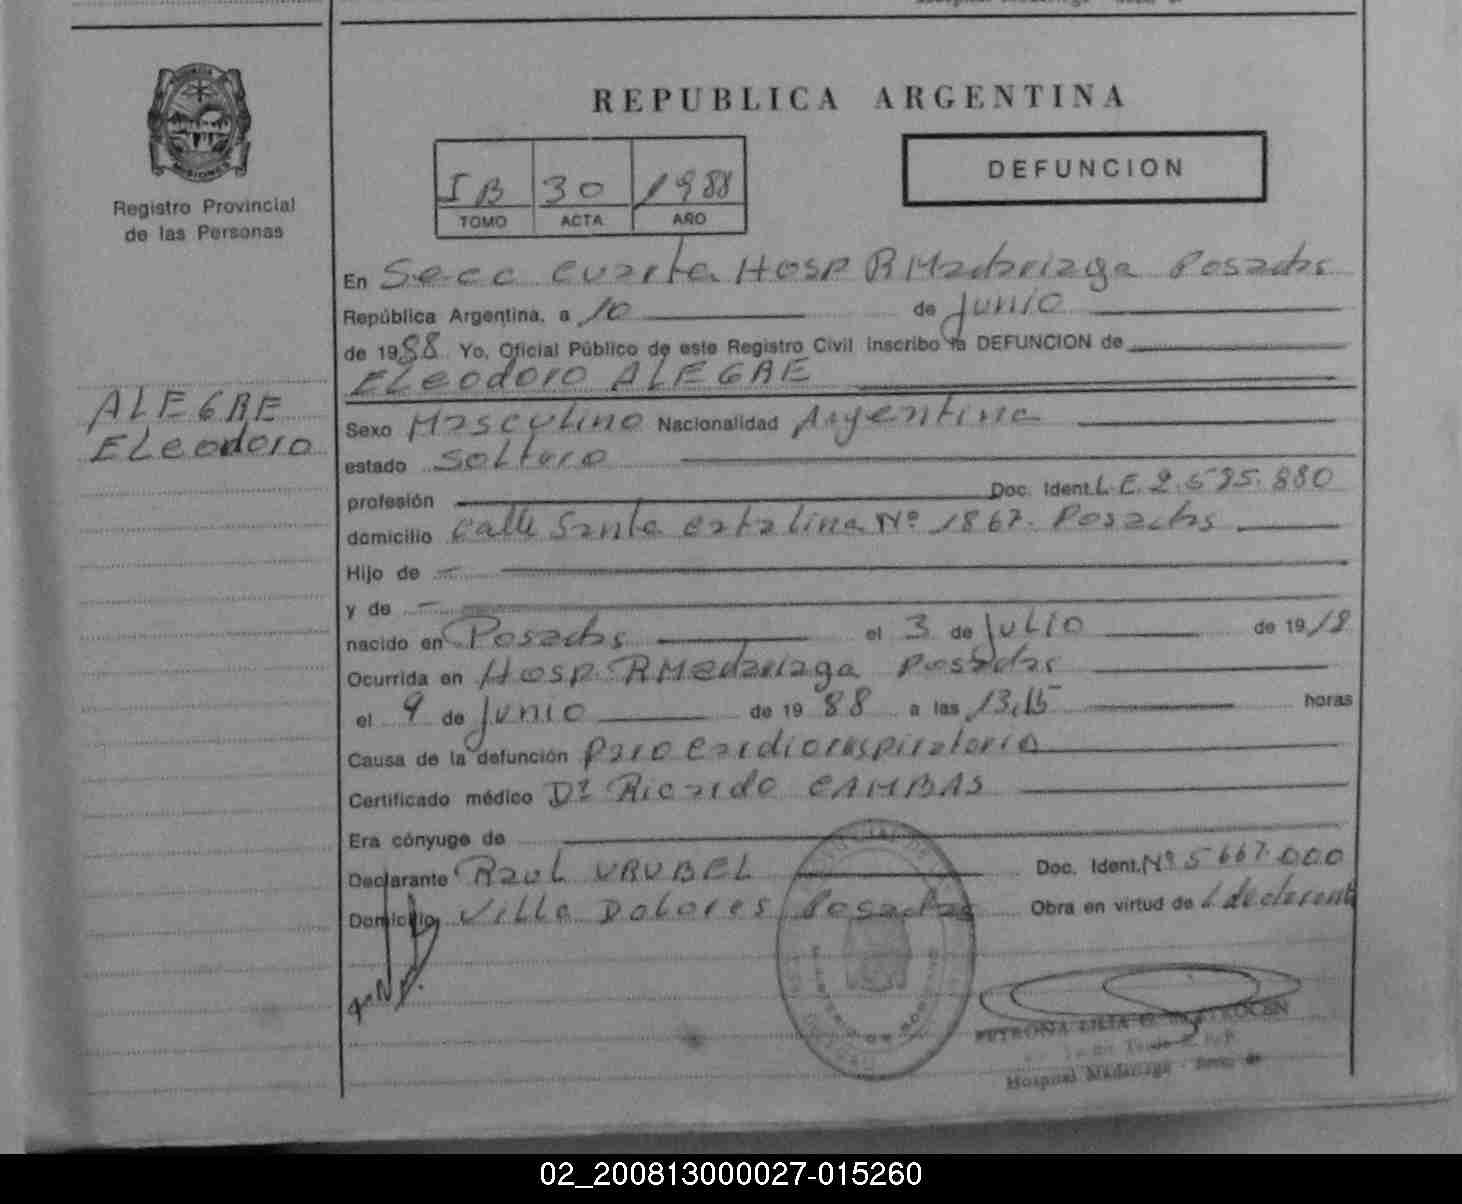 REPUBLICA ARGENTINA
PROVINCIA
MISIONES
Registro Provincial
de las Personas
IB 30 1988
TOMO ACTA AÑO
DEFUNCION
En Secc cuarta Hosp R Madariaga Posadas
República Argentina, a 10 de Junio
de 1988 Yo, Oficial Público de este Registro Civil inscribo la DEFUNCION de
ELeodoro ALEGRE
ALEGRE
ELeodoro
Sexo Masculino Nacionalidad Argentina
estado Soltero
profesión Doc. Ident. L.E. 2.535.880
domicilio Calle Santa Catalina Nº 1867. Posadas
Hijo de —
y de —
nacido en Posadas el 3 de JULIO de 1918
Ocurrida en Hosp. R Madariaga Posadas
el 9 de Junio de 1988 a las 13,15 horas
Causa de la defunción paro cardiorespiratorio
Certificado médico Dr Ricardo CAMBAS
Era cónyuge de
Declarante Raul URUBEL Doc. Ident. Nº 5667.000
Domicilio Villa Dolores Posadas Obra en virtud de L declarant
PETRONA LILIA
Hospital Madariaga - Secc. 4a
02_200813000027-015260